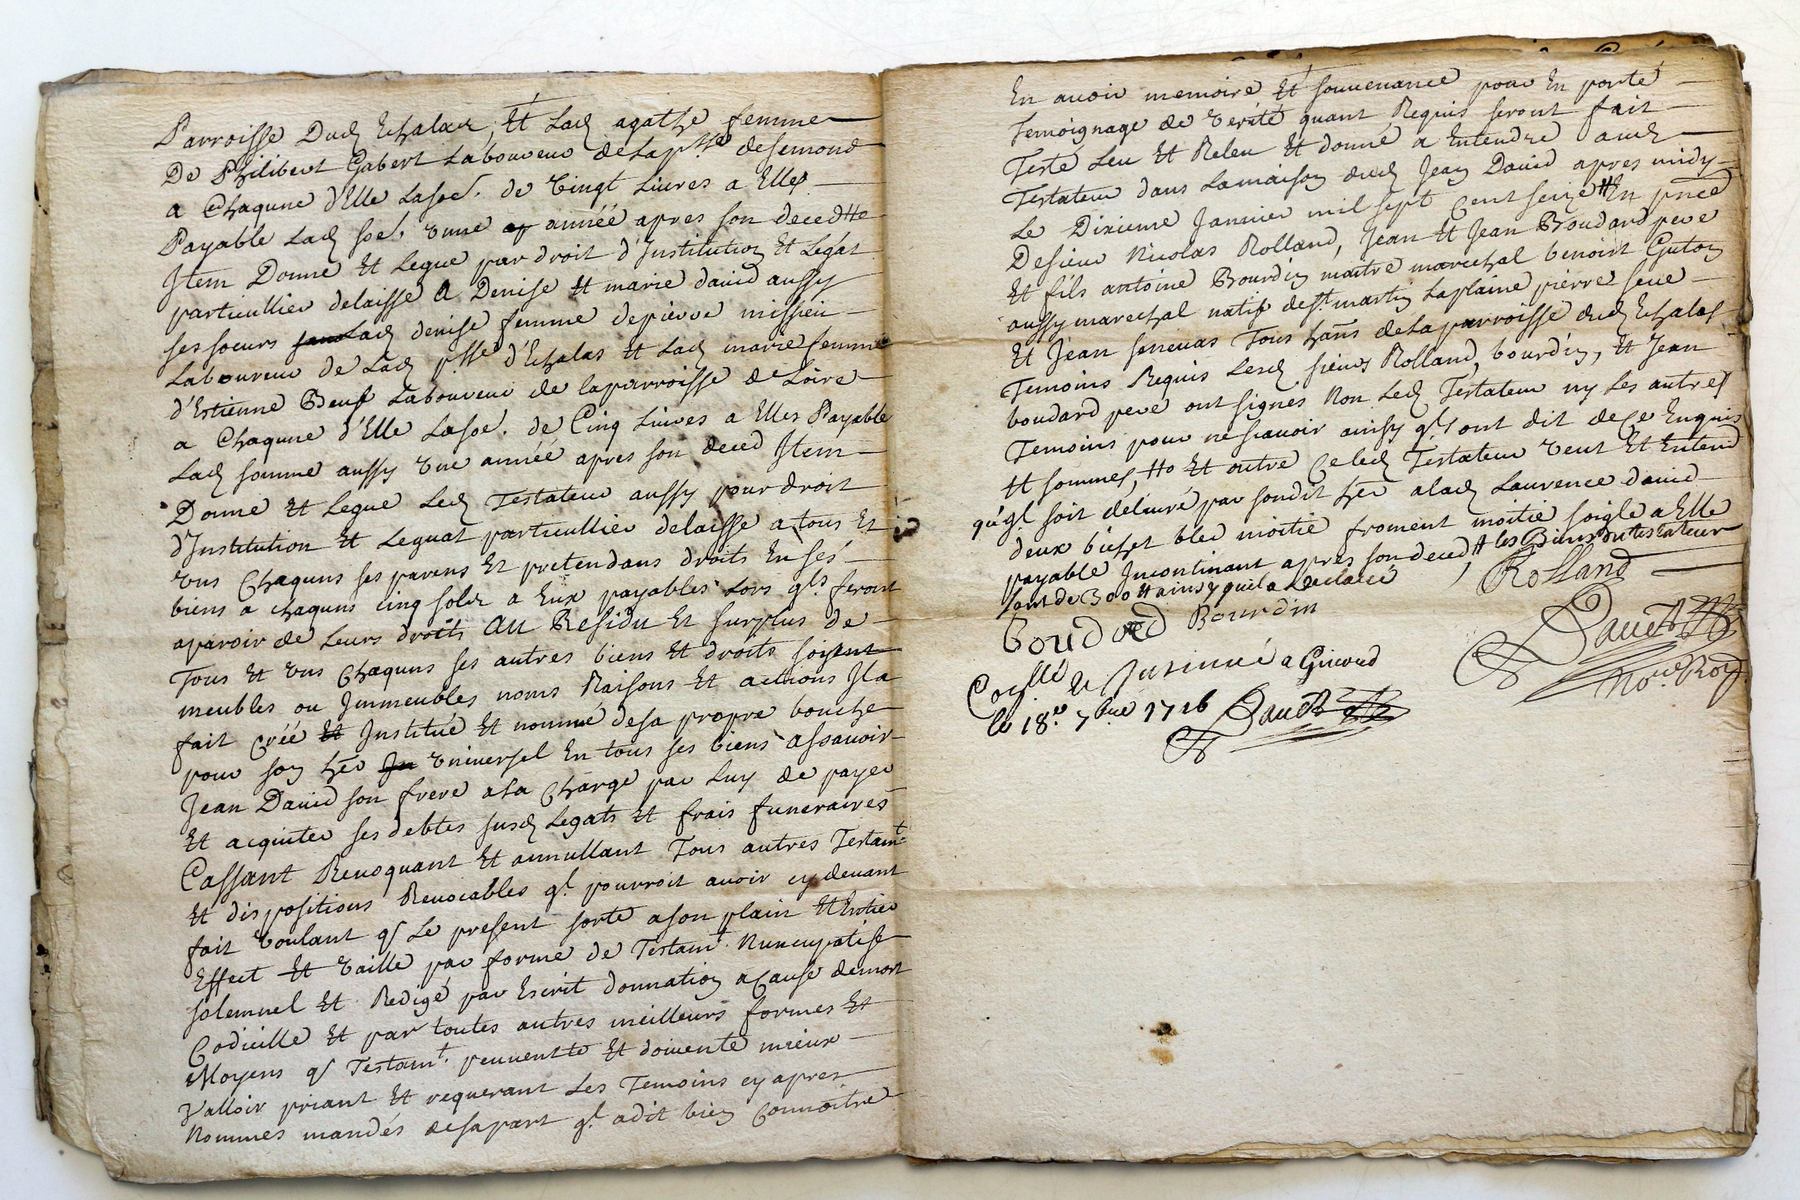 Parroisse Dud Echalas, Et Lad agathe femme
De Philibert Gabert Laboureur de la psse de semond
a Chaqune d'Elle Lasoe. de Vingt Livres a Elles
Payable Lad soe. Vune année apres son deced #
Item Donne Et Legue par droit d'Institution Et Légat
particullier delaisse A Denise Et marie david aussy
ses soeurs Lad denise femme de pierre missieu
Laboureur de Lad psse d'Echalas Et Lad marie femme
d'Estienne Beuf Laboureur de la parroisse de Loire
a Chaqune d'Elle Lasoe. de Cinq Livres a Elles Payable
Lad somme aussy Vne année apres son deced Item
Donne Et Legue Led Testateur aussy pour droit
d'Institution Et Leguat particullier delaisse a tous Et
Vns Chaquns ses parens Et pretendans droits En ses
biens a chaquns cinq solz a Eux payables Lors qls feront
aparoir de Leurs droits AU Residu Et surplus de
Tous Et Vns Chaquns ses autres biens Et droits soyent
meubles ou Immeubles noms Raisons Et actions Il a
fait créé Et Institué Et nommé de sa propre bouche
pour son her Vniversel En tous ses biens Assavoir
Jean David son frere a la Charge par Luy de payer
Et acquiter ses debtes susd Legats Et frais funeraires
Cassant Revoquant Et annullant Tous autres Testamt
Et dispositions Revocables ql pourroit avoir cy devant
fait Voulant q Le present sorte a son plain Et Entier
Effect Et Vaille par forme de Testamt Nuncupatif
solemnel Et Redigé par Escrit donnation a Cause de mort
Codicille Et par toutes autres meilleurs formes Et
Moyens q Testamt. peuvente Et doivente mieux
Valloir priant Et requerant Les Temoins cy apres
Nommes mandés de sa part ql a dit bien Connoitre
En avoir memoire Et souvenance pour En porté
Temoignage de Verité quant Requis seront fait
Testé Leu Et Releu Et donné a Entendre aud
Testateur dans La maison dud Jean David apres midy
Le Dixieme Janvier mil sept cent seize # En pnce
De sieur Nicolas Rolland, Jean Et Jean Boudard pere
Et fils antoine Bourdin maitre marechal benoist Guton
aussy marechal natif de st martin La plaine pierre seve
Et Jean seneuas Tous hans de la parroisse dud Echalas
Temoins Requis Lesd sieurs Rolland, bourdin, Et Jean
boudard pere ont signes Non Led Testateur ny Les autres
Temoins pour ne scavoir ainsy qls ont dit de Ce Enquis
Et sommes, Et outre Ce Led Testateur Veut Et Entend
qu'il soit délivré par sondit her a Lad Laurence david
deux bichet bled moitie froment moitie soigle a Elle
payable Incontinant apres son deced, # Les Biens du testateur
sont de 300 # ainsy quil a declairé
Rolland
Boudard Bourdin
Not. Roy
Collé Et Insinué a Givord
le 18.e 7bre 1716